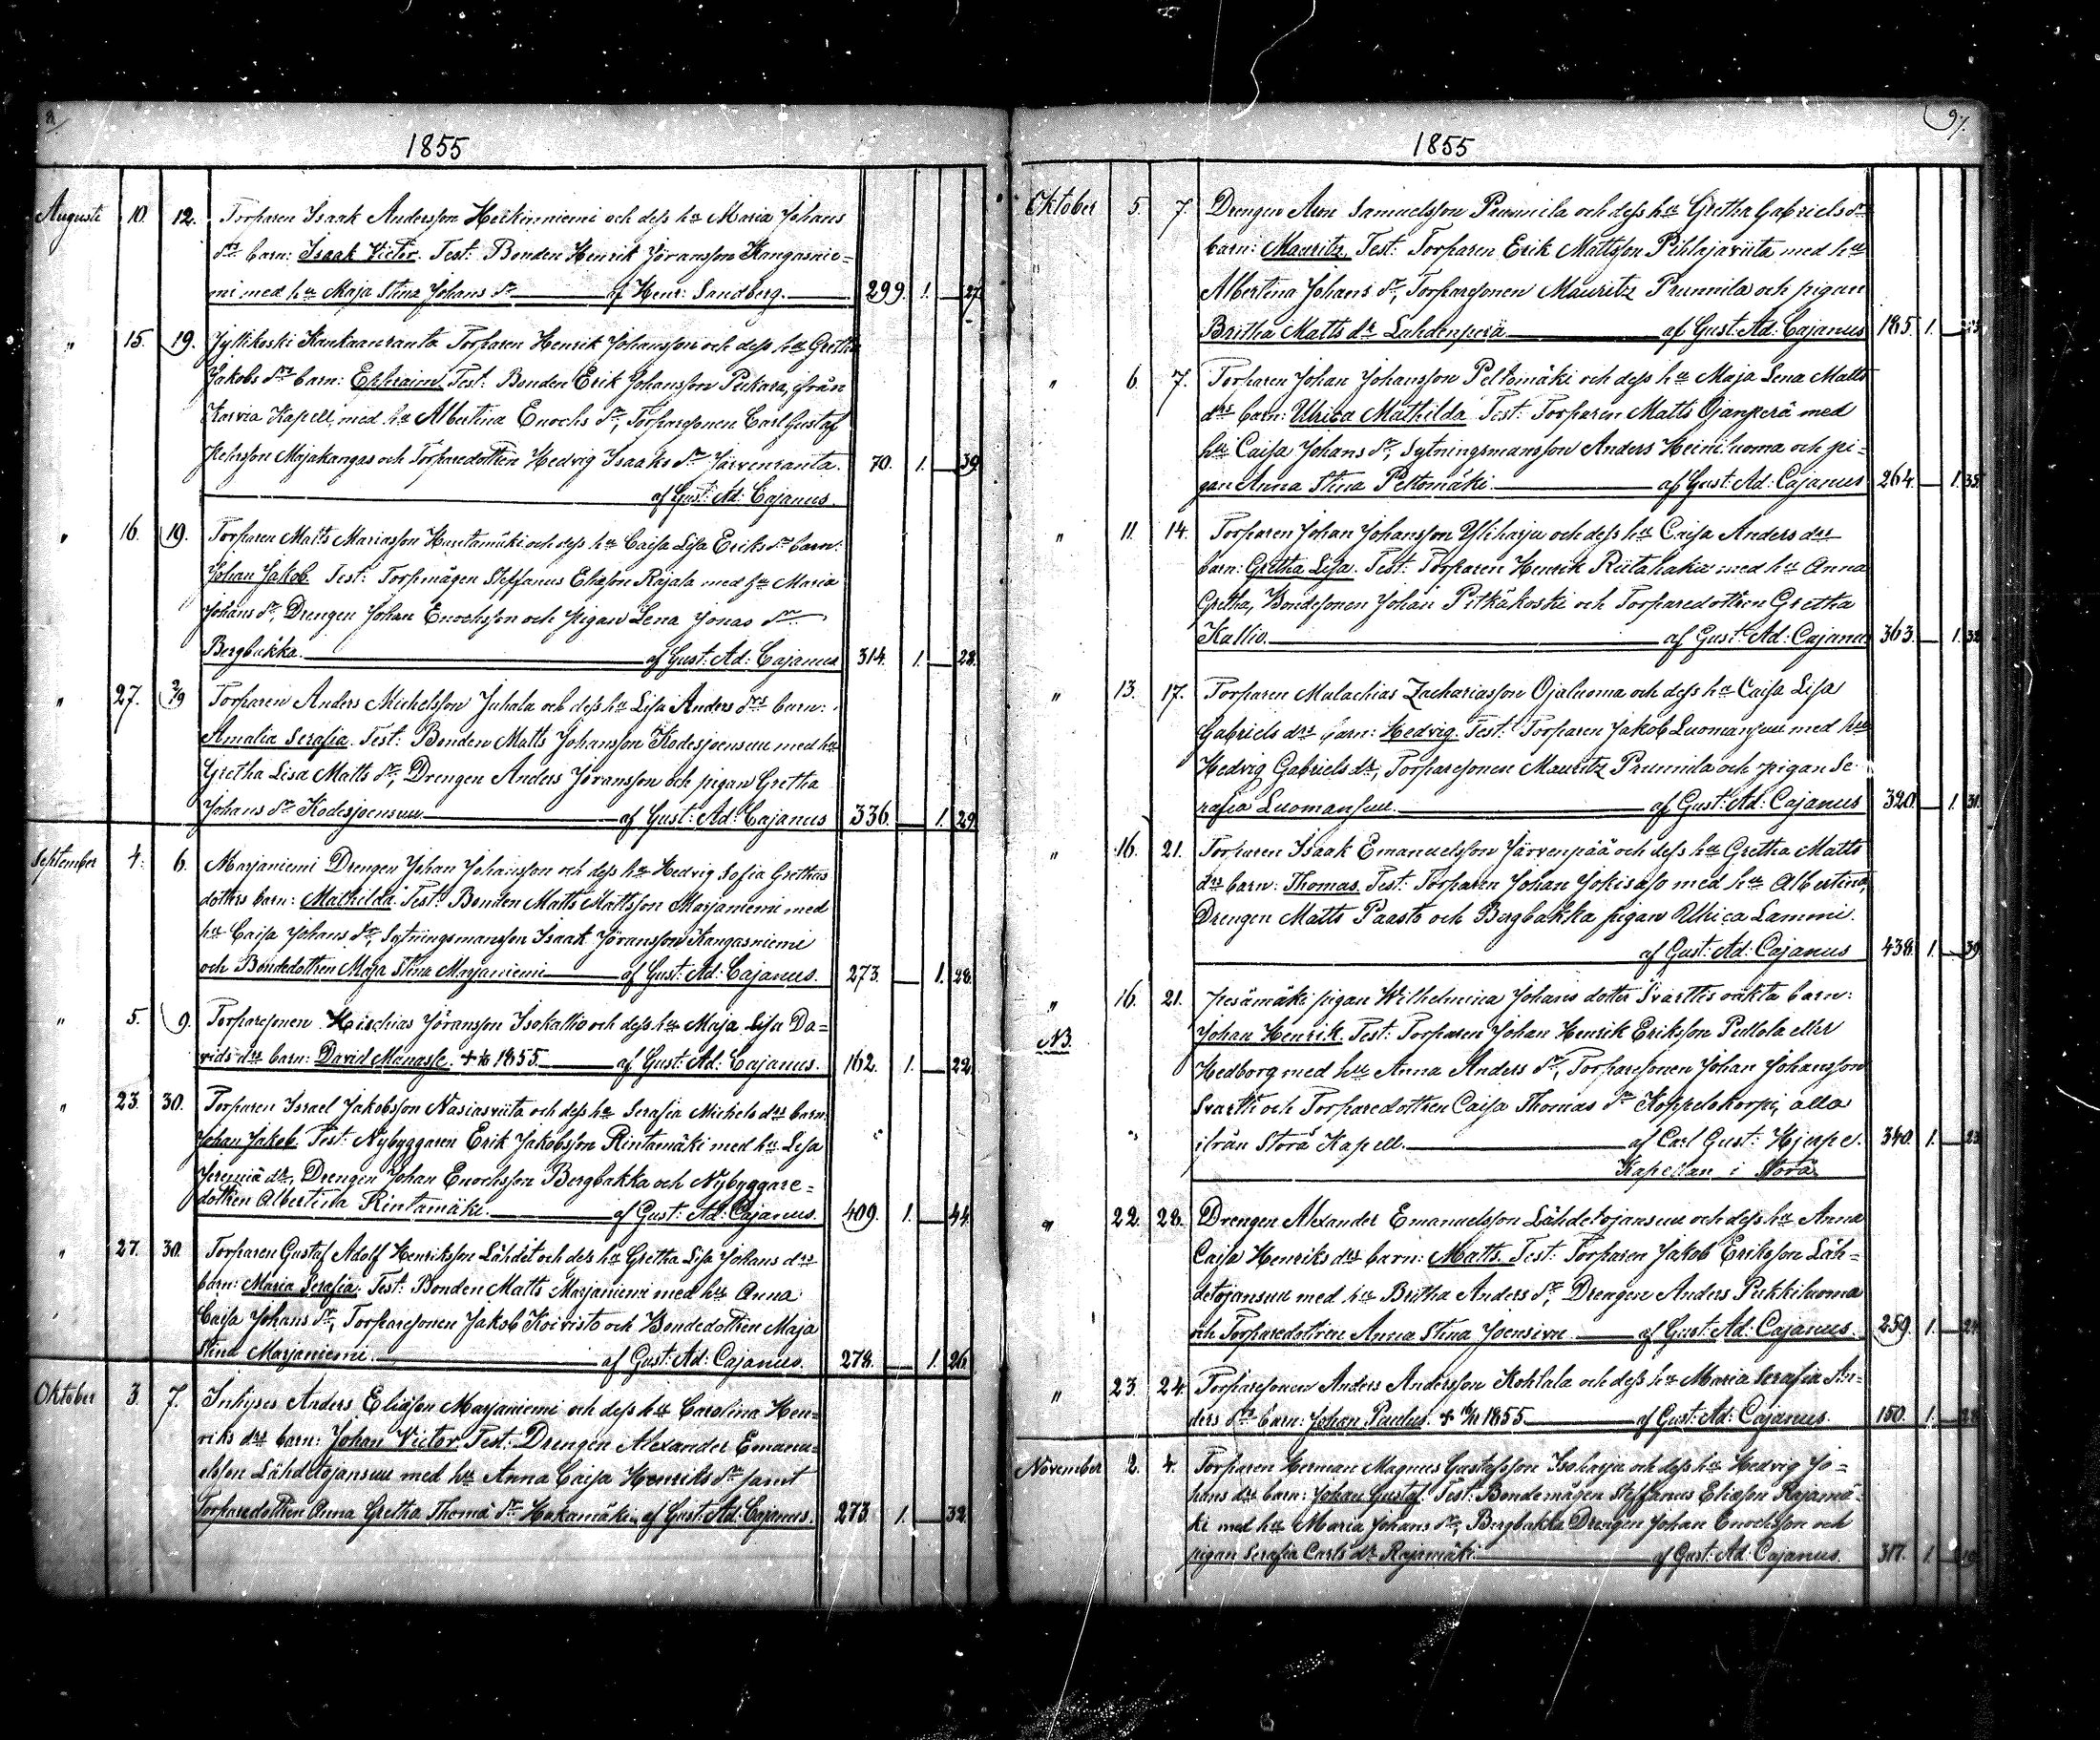 1855
Augusti 10. 12. Torparen Isaak Andersson Heikinniemi och dess hu Maria Johans
drs barn: Isaak Victor. Test: Bonden Henrik Jöransson Kangasnie=
mi med hu Maja Stina Johans dr af Henr: Sandberg. 299. 1. 27.
" 15. 19. Jyllikoski Kankaanranta Torparen Henrik Johansson och dess hu Gretha
Jakobs drs barn: Ephraim. Test: Bonden Erik Johansson Puckara, ifrån
Karvia Kapell, med hu Albertina Enochs dr, Torparesonen Carl Gustaf
Majakangas och Torparedottren Hedvig Isaaks dr Järvenranta. 70. 1. 39.
af Gust: Ad: Cajanus.
" 16. 19. Torparen Matts Mariasson Hautamäki och dess hu Caisa Lisa Eriks drs barn:
Johan Jakob. Test: Torpmågen Steffanus Eliasson Rajala med hu Maria
Johans dr, Drengen Johan Enochsson och pigan Lena Jonas dr
Bergbakka. af Gust: Ad: Cajanus 314. 1. 28.
" 27. 2/9 Torparen Anders Michelsson Juhala och dess hu Lisa Anders drs barn:
Amalia Serafia. Test: Bonden Matts Johansson Kodesjoensuu med hu
Gretha Lisa Matts dr, Drengen Anders Jöransson och pigan Gretha
Johans dr Kodesjoensuu af Gust: Ad: Cajanus 336. 1. 29.
September 4. 6. Marjaniemi Drengen Johan Johansson och dess hu Hedvig Sofia Grethas
dotters barn: Mathilda. Test: Bonden Matts Mattsson Marjaniemi med
hu Caisa Johans dr, Sytningsmansson Isaak Jöransson Kangasniemi
och Bondedottren Maja Stina Marjaniemi af Gust: Ad: Cajanus. 273. 1. 28.
" 5. 9. Torparesonen Hischias Jöransson Isokallio och dess hu Maja Lisa Da=
vids drs barn: David Manasse. 1855. af Gust: Ad: Cajanus. 162. 1. 22.
" 23. 30. Torparen Israel Jakobsson Nasiasviita och dess hu Serafia Michels drs barn:
Johan Jakob. Test: Nybyggaren Erik Jakobsson Rintamäki med hu Lisa
Jeremiä dr, Drengen Johan Enochsson Bergbakka och Nybyggare=
dottren Albertina Rintamäki. af Gust: Ad: Cajanus. 409. 1. 44.
" 27. 30. Torparen Gustaf Adolf Henriksson Lähdet och dess hu Gretha Lisa Johans drs
barn: Maria Serafia. Test: Bonden Matts Marjaniemi med hu Anna
Caisa Johans dr, Torparesonen Jakob Koivisto och Bondedottren Maja
Stina Marjaniemi. af Gust: Ad: Cajanus. 278. 1. 26.
Oktober 3. 7. Inhyses Anders Eliasson Marjaniemi och dess hu Carolina Hen=
riks drs barn: Johan Victor. Test: Drengen Alexander Emanu=
elsson Lähdetojansuu med hu Anna Caisa Henriks dr samt
Torparedottren Anna Gretha Thoma dr Hakamäki af Gust: Ad: Cajanus. 273. 1. 32.
97.
1855
Oktober 5. 7. Drengen Aron Samuelsson Prunnila och dess hu Gretha Gabriels drs
barn: Mauritz. Test: Torparen Erik Mattsson Pihlajaviita med hu
Albertina Johans dr, Torparesonen Mauritz Prunnila och pigan
Britha Matts dr Luhdenperä af Gust: Ad: Cajanus 185. 1.
" 6. 7. Torparen Johan Johansson Peltomäki och dess hu Maja Lena Matts
drs barn: Ulrica Mathilda. Test: Torparen Matts Ojanperä med
hu Caisa Johans dr, Sytningsmansson Anders Heiniluoma och pi=
gan Anna Stina Peltomäki. af Gust: Ad: Cajanus 264. 1. 35.
" 11. 14. Torparen Johan Johansson Yliharju och dess hu Caisa Anders drs
barn: Gretha Lisa. Test: Torparen Henrik Riitahaka med hu Anna
Gretha, Bondesonen Johan Pitkäkoski och Torparedottren Gretha
Kallio. af Gust: Ad: Cajanus 363. 1. 32.
" 13. 17. Torparen Malachias Zachariasson Ojaluoma och dess hu Caisa Lisa
Gabriels drs barn: Hedvig. Test: Torparen Jakob Luomansuu med hu
Hedvig Gabriels dr, Torparesonen Mauritz Prunnila och pigan Se=
rafia Luomansuu. af Gust: Ad: Cajanus 320. 1. 31.
" 16. 21. Torparen Isaak Emanuelsson Järvenpää och dess hu Gretha Matts
drs barn: Thomas. Test: Torparen Johan Jokisaso med hu Albertina,
Drengen Matts Paasto och Bergbakka pigan Ulrica Lammi.
af Gust: Ad: Cajanus 438. 1. 39.
" 16. 21. Pesämäki pigan Wilhelmina Johans dotter Svarttis oäkta barn:
NB. Johan Henrik. Test: Torparen Johan Henrik Eriksson Peltola eller
Hedborg med hu Anna Anders dr, Torparesonen Johan Johansson
Svartti och Torparedottren Caisa Thomas dr Koppelokorpi, alla
ifrån Storå Kapell. af Carl Gust: Hjerpe. 340. 1. 23.
Kapellan i Storå.
" 22. 28. Drengen Alexander Emanuelsson Lähdetojansuu och dess hu Anna
Caisa Henriks drs barn: Matts. Test: Torparen Jakob Eriksson Läh=
detojansuu med hu Britha Anders dr, Drengen Anders Pukkiluoma
och Torparedottren Anna Stina Joensivu. af Gust: Ad: Cajanus. 259. 1.
" 23. 24. Torparesonen Anders Andersson Kohtala och dess hu Maria Serafia An=
ders drs barn: Johan Paulus. 1855 af Gust: Ad: Cajanus. 150. 1.
November 2. 4. Torparen Herman Magnus Gustafsson Isoharja och dess hu Hedvig Jo=
hans drs barn: Johan Gustaf. Test: Bondemågen Steffanus Eliasson Rajamä=
ki med hu Maria Johans dr, Bergbakka Drengen Johan Enochsson och
pigan Serafia Carls dr Rajamäki af Gust: Ad: Cajanus. 317. 1.